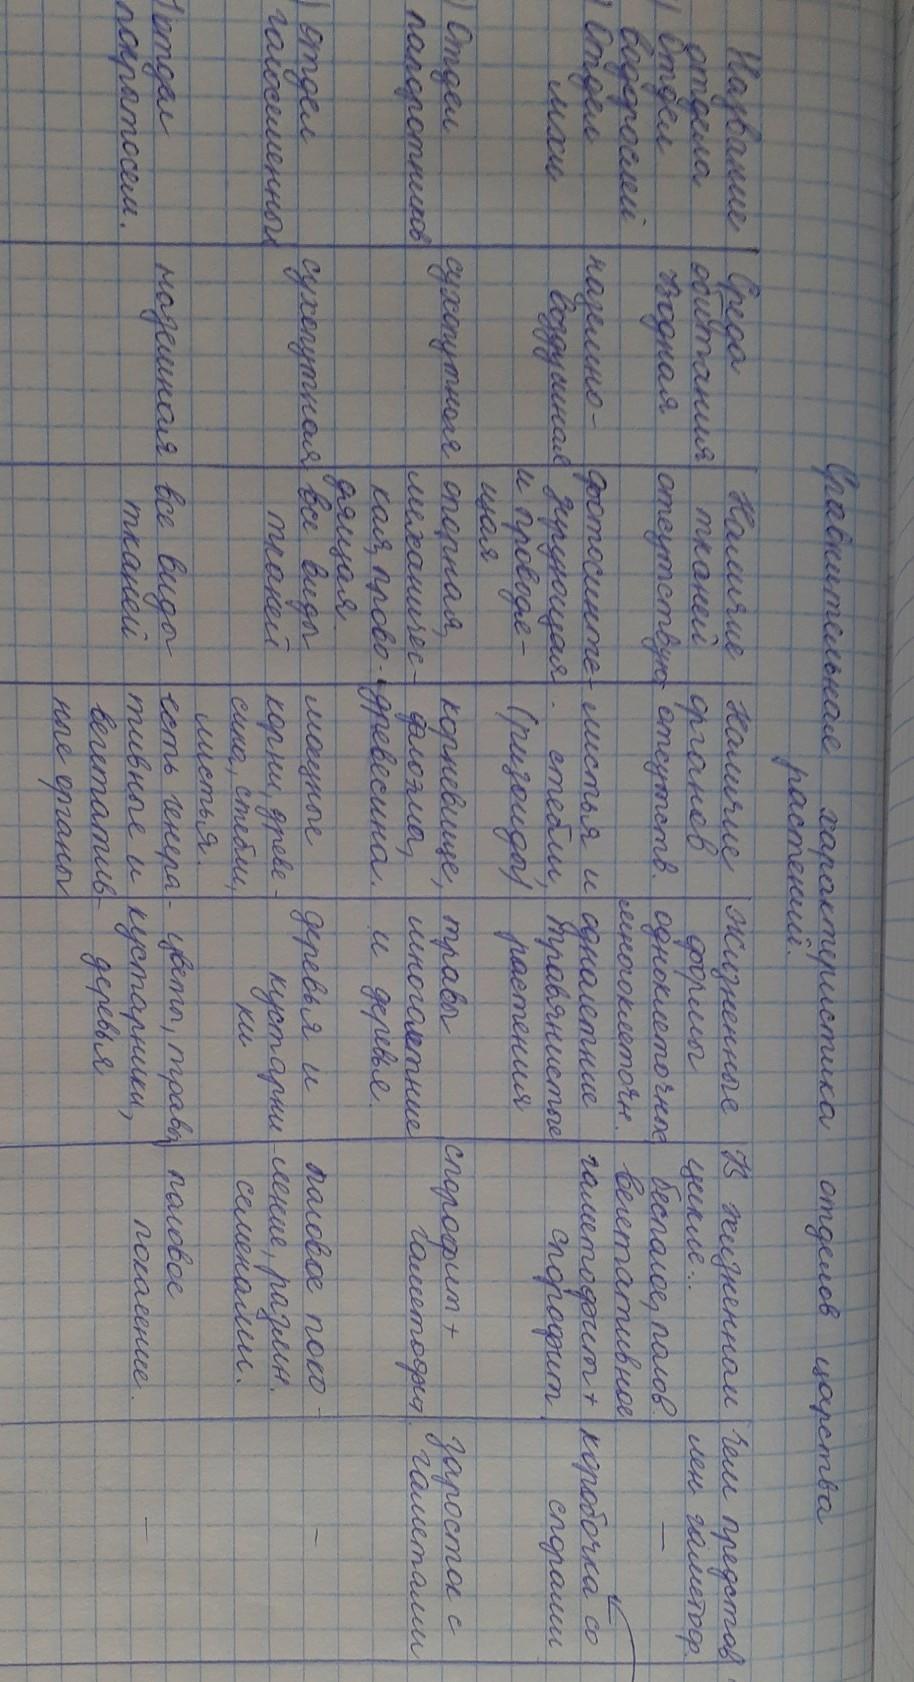 Сравнительная характеристика отделов царства
растений.
Название
отдела
Среда
обитания
Наличие
тканей
Наличие
органов
Жизненные
формы
В жизненном
цикле..
Чем представ
лен гаметоф.
1) Отдел
водорослей
водная
отсутствую
отсутств.
одноклеточные
многоклеточн.
бесполое, полов
вегетативное
—
) Отдел
мхи
наземно-
воздушная
фотосинте-
зирующая
и проводя-
щая
листья и
стебли,
(ризоиды)
однолетние
травянистые
растения
гаметофит +
спорофит
коробочка со
спорами
) Отдел
папоротников
сухопутная
опорная,
механичес-
кая, прово-
дящая
корневище,
флоэма,
древесина.
травы
многолетние
и деревья.
спорофит +
гаметофит.
заросток с
гаметами
) отдел
голосеменных
сухопутная
все виды
тканей
мощные
корни, древе-
сина, стебли,
листья.
деревья и
кустарни
ки
половое поко-
ление, размн.
семенами.
—
) отдел
покрытосем.
наземная
все виды
тканей
есть генера-
тивные и
вегетатив-
ные органы
цветы, травы
кустарники,
деревья
половое
поколение.
—